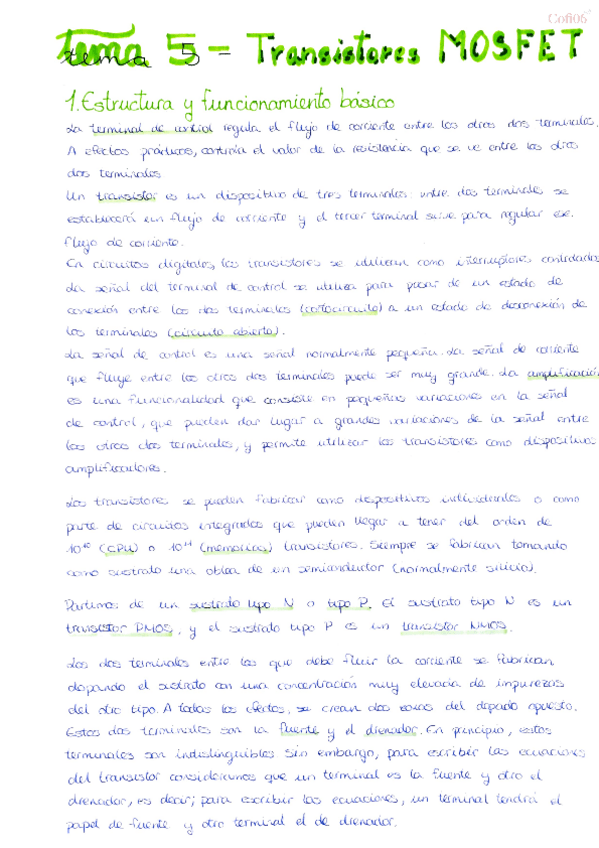 Cofi06
Tema 5 - Transistores MOSFET
1. Estructura y funcionamiento básico
La terminal de control regula el flujo de corriente entre los otros dos terminales.
A efectos prácticos, controla el valor de la resistencia que se ve entre los otros
dos terminales.
Un transistor es un dispositivo de tres terminales: entre dos terminales se
establecerá un flujo de corriente y el tercer terminal sirve para regular ese
flujo de corriente.
En circuitos digitales, los transistores se utilizan como interruptores controlados.
La señal del terminal de control se utiliza para pasar de un estado de
conexión entre los dos terminales (cortocircuito) a un estado de desconexión de
los terminales (circuito abierto).
La señal de control es una señal normalmente pequeña. La señal de corriente
que fluye entre los otros dos terminales puede ser muy grande. La amplificación
es una funcionalidad que consiste en pequeñas variaciones en la señal
de control, que pueden dar lugar a grandes variaciones de la señal entre
los otros dos terminales, y permite utilizar los transistores como dispositivos
amplificadores.
Los transistores se pueden fabricar como dispositivos individuales o como
parte de circuitos integrados que pueden llegar a tener del orden de
(CPU) o (memorias) transistores. Siempre se fabrican tomando
como sustrato una oblea de un semiconductor (normalmente silicio).
Partimos de un sustrato tipo N o tipo P. El sustrato tipo N es un
transistor PMOS, y el sustrato tipo P es un transistor NMOS.
Los dos terminales entre los que debe fluir la corriente se fabrican
dopando el sustrato con una concentración muy elevada de impurezas
del otro tipo. A todos los efectos, se crean dos zonas del dopado opuesto.
Estos dos terminales son la fuente y el drenador. En principio, estos
terminales son indistinguibles sin embargo, para escribir las ecuaciones
del transistor consideramos que un terminal es la fuente y otro el
drenador, es decir; para escribir las ecuaciones, un terminal tendrá el
papel de fuente y otro terminal el de drenador.